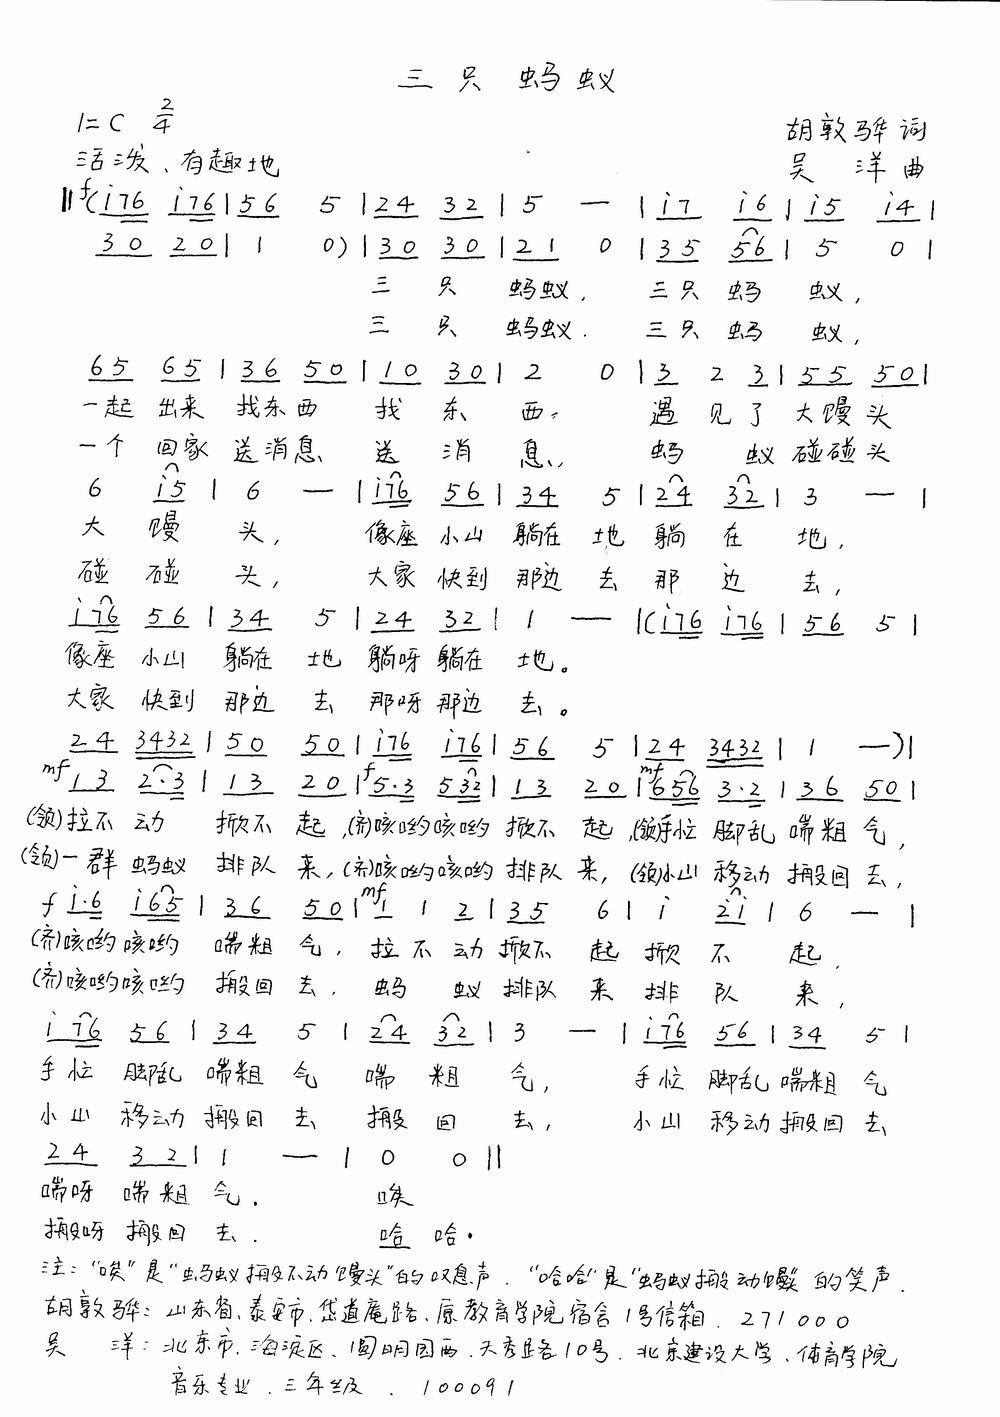 三只 蚂蚁
1=C 2/4
胡敦骅 词
活泼、有趣地
吴 洋 曲
‖f(i76 i76 | 56 5 | 24 32 | 5 — | i7 i6 | i5 i4 |
30 20 | 1 0) | 30 30 | 21 0 | 35 56 | 5 0 |
三 只 蚂蚁, 三只 蚂 蚁,
三 只 蚂蚁. 三只 蚂 蚁,
65 65 | 36 50 | 10 30 | 2 0 | 3 2 3 | 55 50 |
一起 出来 找东西 找 东 西, 遇 见 了 大馒头
一个 回家 送消息 送 消 息, 蚂 蚁 碰碰头
6 i5 | 6 — | i76 56 | 34 5 | 24 32 | 3 — |
大 馒 头, 像座 小山 躺在 地 躺 在 地,
碰 碰 头, 大家 快到 那边 去 那 边 去,
i76 56 | 34 5 | 24 32 | 1 — |(i76 i76 | 56 5 |
像座 小山 躺在 地 躺呀 躺在 地。
大家 快到 那边 去 那呀 那边 去。
24 3432 | 50 50 | i76 i76 | 56 5 | 24 3432 | 1 —)|
mf 13 2·3 | 13 20 | f 5·3 532 | 13 20 | mf 656 3·2 | 36 50 |
(领)拉不 动 掀不 起,(齐)咳哟咳哟 掀不 起,(领)手忙 脚乱 喘粗 气,
(领)一群 蚂蚁 排队 来,(齐)咳哟咳哟 排队 来,(领)小山 移动 搬回 去,
f i·6 i65 | 36 50 | mf 1 1 2 | 35 6 | i 2i | 6 — |
(齐)咳哟 咳哟 喘粗 气, 拉 不 动 掀不 起 掀 不 起,
(齐)咳哟咳哟 搬回 去. 蚂 蚁 排队 来 排 队 来,
i 76 56 | 34 5 | 24 32 | 3 — | i76 56 | 34 5 |
手忙 脚乱 喘粗 气 喘 粗 气, 手忙 脚乱 喘粗 气
小山 移动 搬回 去 搬 回 去, 小山 移动 搬回 去
24 32 | 1 — | 0 0 ‖
喘呀 喘粗 气. 唉
搬呀 搬回 去. 哈 哈.
注:“唉”是“蚂蚁搬不动馒头”的叹息声.“哈哈”是“蚂蚁搬动馒头”的笑声.
胡敦骅: 山东省、泰安市、岱道庵路、原教育学院宿舍1号信箱. 271000
吴 洋: 北京市、海淀区、圆明园西、天秀路10号. 北京建设大学、体育学院
音乐专业.三年级. 100091